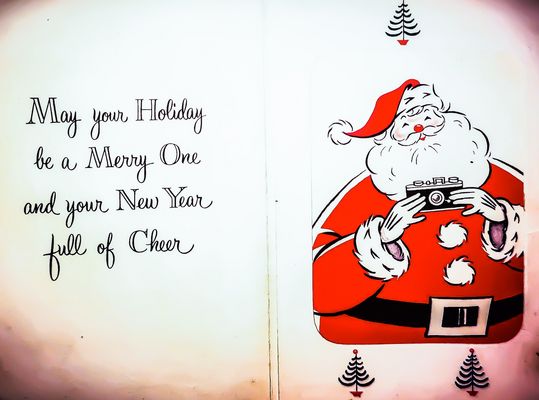 May your Holiday
be a Merry One
and your New Year
full of Cheer